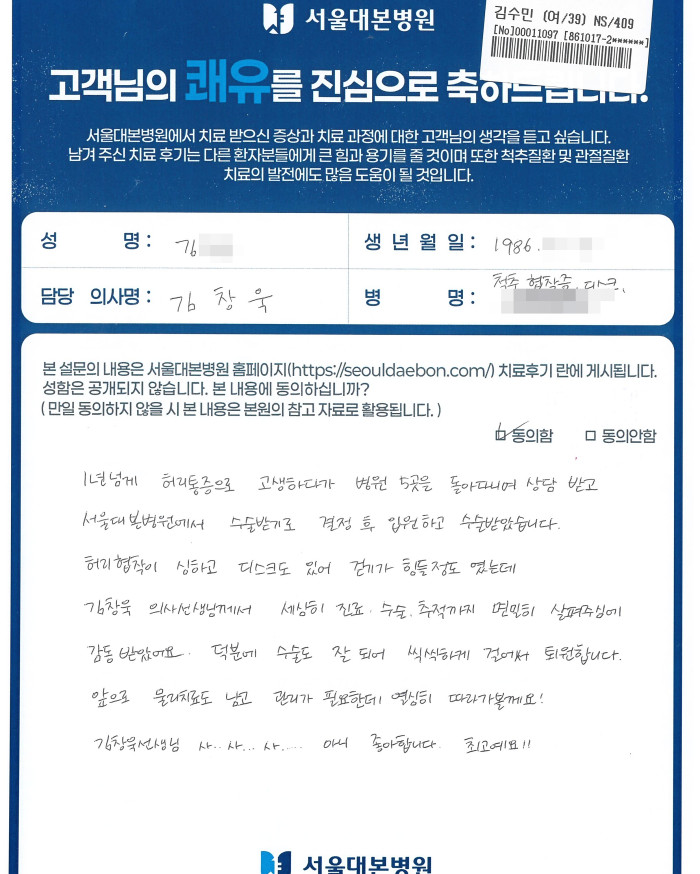 서울대본병원
김수민 (여/39) NS/409
[No]00011097 [861017-2******]
고객님의 쾌유를 진심으로 축하드립니다.
서울대본병원에서 치료 받으신 증상과 치료 과정에 대한 고객님의 생각을 듣고 싶습니다.
남겨 주신 치료 후기는 다른 환자분들에게 큰 힘과 용기를 줄 것이며 또한 척추질환 및 관절질환
치료의 발전에도 많음 도움이 될 것입니다.
성 명 : 김
생 년 월 일 : 1986.
담당 의사명 : 김 창 욱
병 명 : 척추 협착증. 디스크.
본 설문의 내용은 서울대본병원 홈페이지(https://seouldaebon.com/) 치료후기 란에 게시됩니다.
성함은 공개되지 않습니다. 본 내용에 동의하십니까?
( 만일 동의하지 않을 시 본 내용은 본원의 참고 자료로 활용됩니다. )
동의함 동의안함
1년넘게 허리통증으로 고생하다가 병원 5곳을 돌아다니며 상담 받고
서울대본병원에서 수술받기로 결정 후 입원하고 수술받았습니다.
허리협착이 심하고 디스크도 있어 걷기가 힘들정도 였는데
김창욱 의사선생님께서 세심히 진료. 수술. 추적까지 면밀히 살펴주심에
감동받았어요. 덕분에 수술도 잘 되어 씩씩하게 걸어서 퇴원합니다.
앞으로 물리치료도 남고 관리가 필요한데 열심히 따라가볼께요!
김창욱선생님 사.. 사... 사.... 아니 좋아합니다. 최고예요!!
서울대본병원